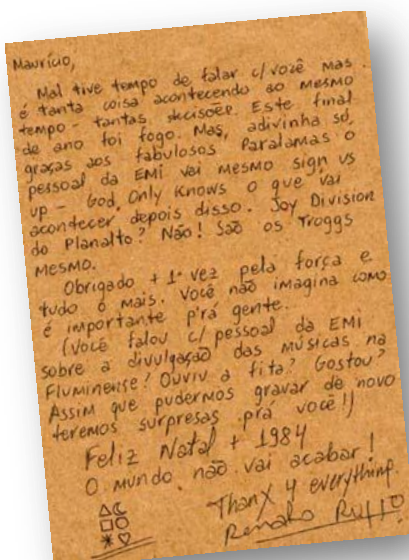 Maurício,
Mal tive tempo de falar c/você mas
é tanta coisa acontecendo ao mesmo
tempo - tantas decisões. Este final
de ano foi fogo. Mas, adivinha só,
graças aos fabulosos Paralamas o
pessoal da EMI vai mesmo sign us
up - God Only Knows o que vai
acontecer depois disso. Joy Division
do Planalto? Não! São os Troggs
mesmo.
Obrigado + 1ª vez pela força e
tudo o mais. Você não imagina como
é importante p'rá gente.
(Você falou c/ pessoal da EMI
sobre a divulgação das músicas na
Fluminense? Ouviu a fita? Gostou?
Assim que pudermos gravar de novo
teremos surpresas prá você!)
Feliz Natal + 1984
O mundo não vai acabar!
Thanx 4 everything.
Renato Russo